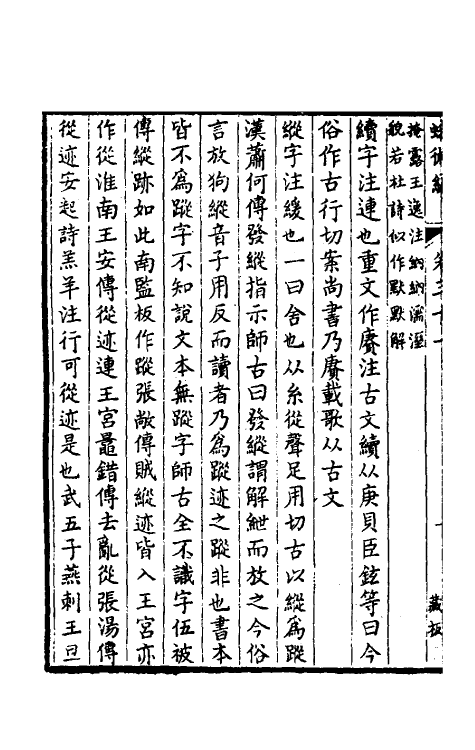 掩露王逸注納納濡溼
貌若杜詩似作默默解
續字注連也重文作賡注古文續从庚貝臣鉉等曰今
俗作古行切案尚書乃賡載歌从古文
縱字注緩也一曰舍也从糸從聲足用切古以縱爲蹤
漢蕭何傳發縱指示師古曰發縱謂解紲而放之今俗
言放狗縱音子用反而讀者乃爲蹤迹之蹤非也書本
皆不爲蹤字不知說文本無蹤字師古全不識字伍被
傳縱跡如此南監板作蹤張敞傳賊縱迹皆入王宮亦
作從淮南王安傳從迹連王宮鼂錯傳去亂從張湯傳
從迹安起詩羔羊注行可從迹是也武五子燕刺王旦